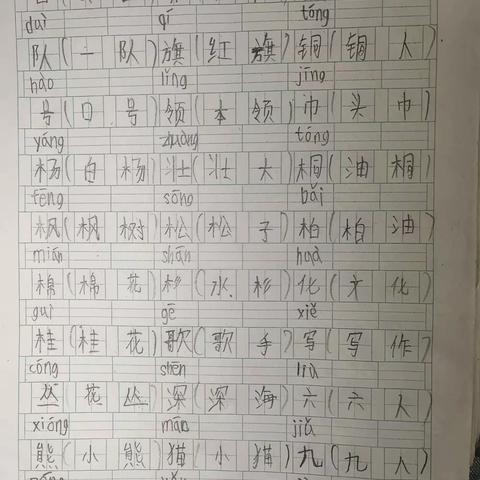 duì qí tóng
队(一队)旗(红旗)铜(铜人)
hào lǐng jīng
号(口号)领(本领)巾(头巾)
yáng zhuàng tóng
杨(白杨)壮(壮大)桐(油桐)
fēng sōng bǎi
枫(枫树)松(松子)柏(柏油)
mián shān huà
棉(棉花)杉(水杉)化(文化)
guì gē xiě
桂(桂花)歌(歌手)写(写作)
cóng shēn liù
丛(花丛)深(深海)六(六人)
xióng māo jiǔ
熊(小熊)猫(小猫)九(九人)